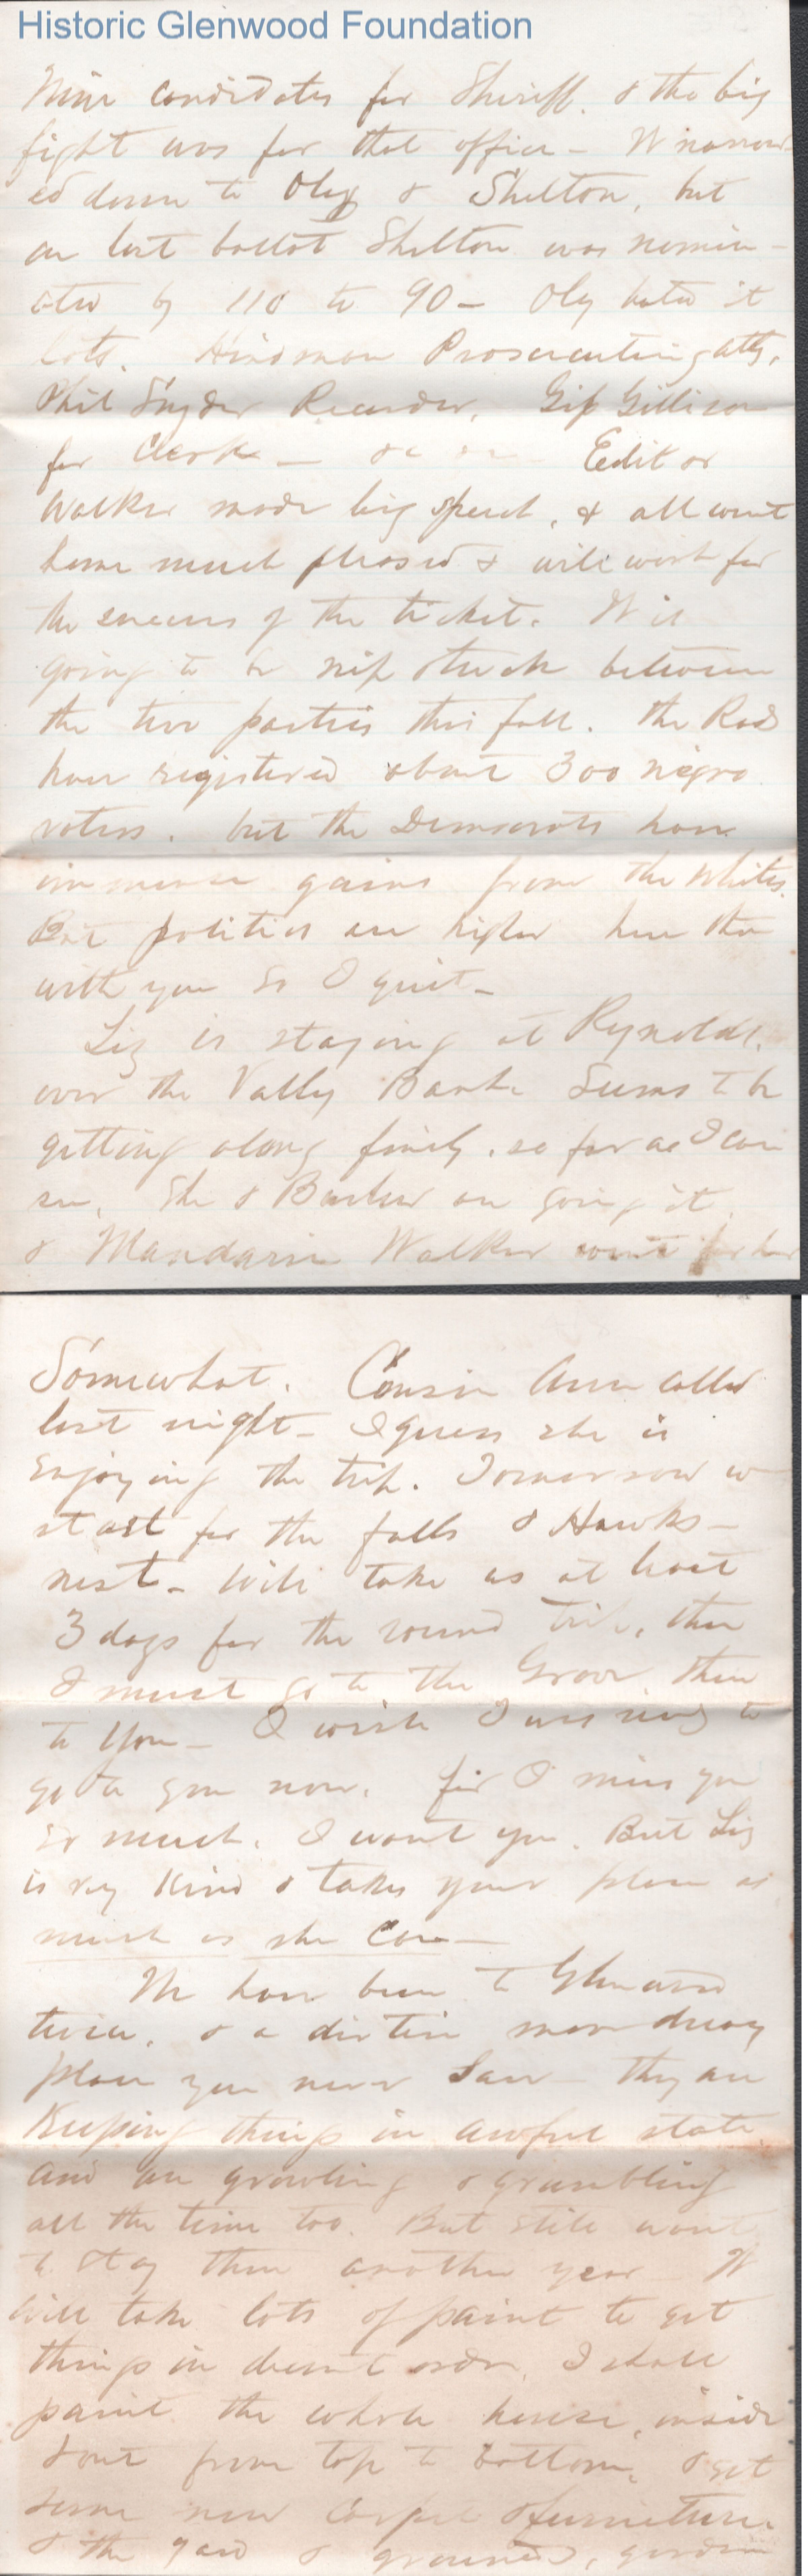 Historic Glenwood Foundation
Nine candidates for Sheriff. & the big
fight was for that office - It narrow-
ed down to Oley & Shelton, but
on last ballot Shelton was nomin-
ated by 110 to 90 - Oley hated it
lots. Hindman Prosecuting atty.
Phil Snyder Recorder. Gip Gillison
for Clerk - &c Editor
Walker made big speech, & all went
home much pleased & will work for
the success of the ticket. It is
going to be nip & tuck between
the two parties this fall. The Rads
have registered about 300 negro
voters. but the Democrats have
immense gains from the whites.
But politics are higher here than
with you so I quit -
Liz is staying at Rynolds.
over the Vally Bank Seems to be
getting along finely. so far as I can
see. She & are going it.
& Mandarin Walker went for her
Somewhat. Cousin Ann called
last night - I guess she is
enjoying the trip. Tomorrow we
start for the falls & Hawks-
nest - Will take us at least
3 days for the round trip, then
I must go to the Grove, then
to You - I wish I was ready to
go to you now. for I miss you
so much. I want you. But Liz
is very kind & takes your place as
much as she can -
We have been to Glenwood
twice. & a dirtier more dreary
place you never saw - They are
Keeping things in awful state.
and are growling & grumbling
all the time too. But still want
to stay there another year - It
will take lots of paint to get
things in decent order. I shall
paint the whole house, inside
& out from top to bottom. & get
some new carpet & furniture.
& the yard & grounds, garden